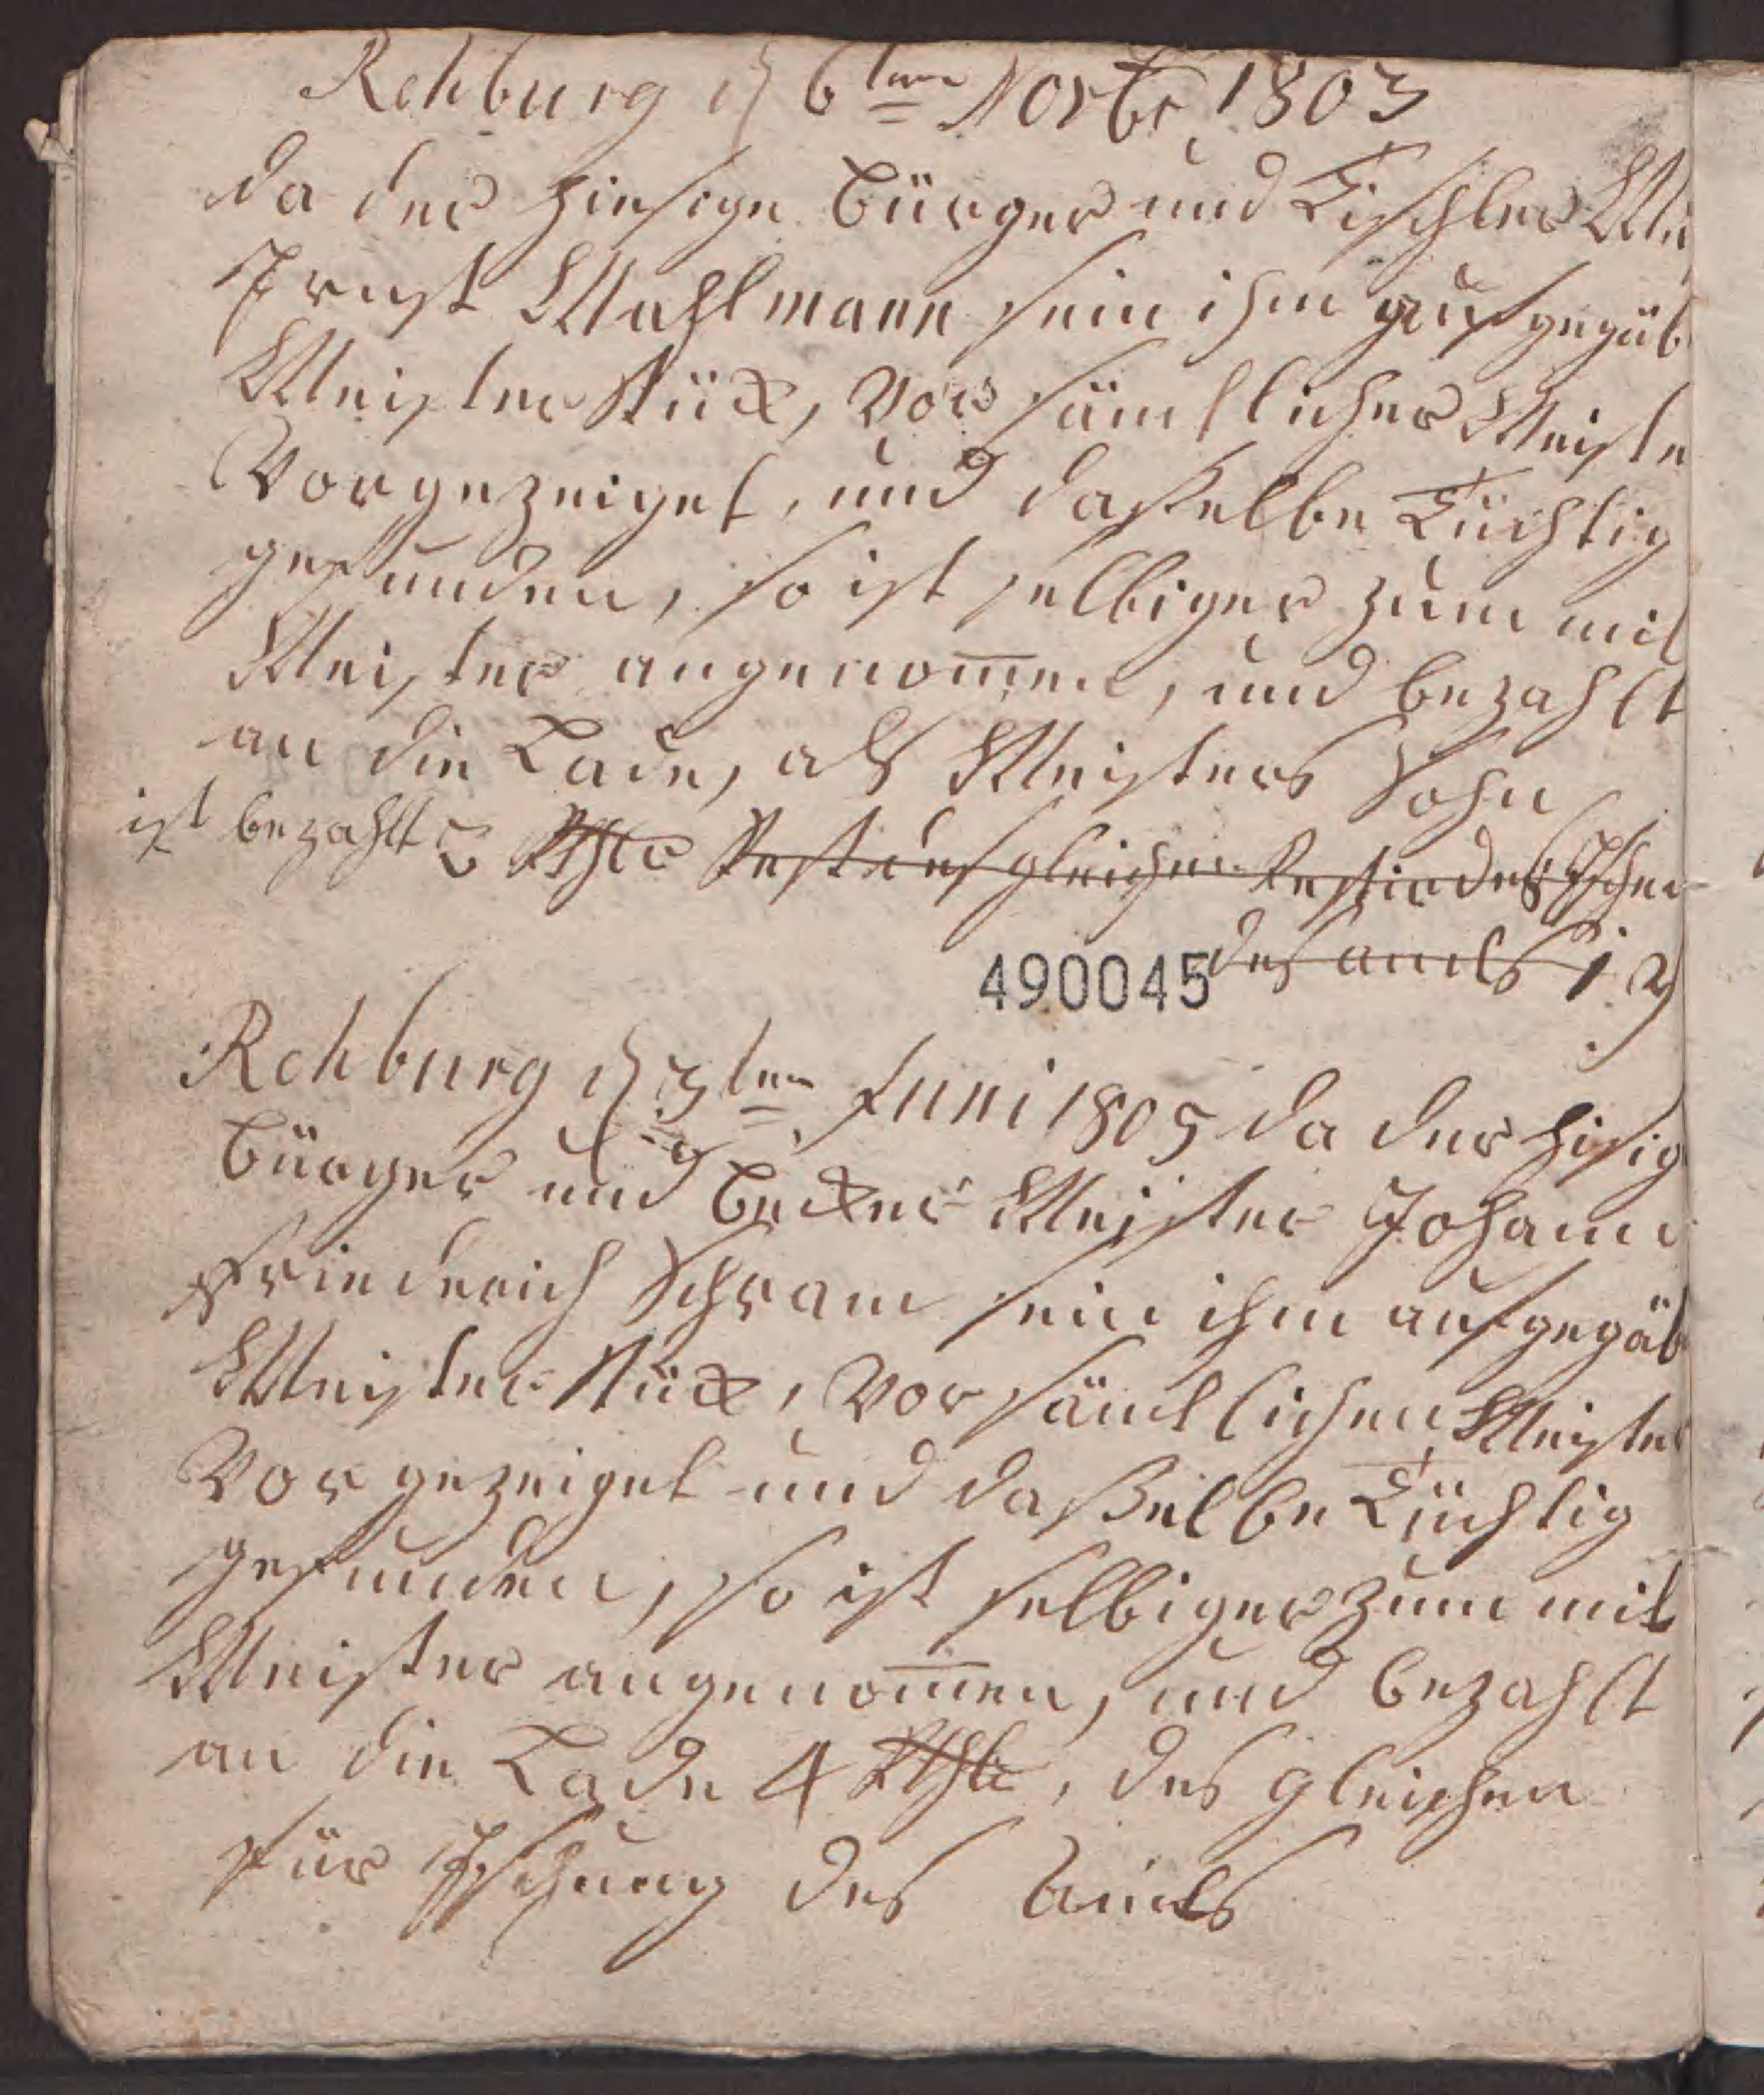 Rehburg d 6ten Novbr 1803
da der hiesige Bürger und Tischler
Ernst Mahlmann sein ihm aufgegäb
Meister Stück, vor sämtlicher Meiste
Vorgezeiget, und daßelbe Tüchtig
gefunden, so ist selbiger zum mit
Meister angenom̅en, und bezahlt
an die Lade, als Meisters Sohn
ist bezahlt 3 Rthlr Rest desgleichen
des amts
490045
Rehburg d 3ten Juni 1805 da der hisig
Bürger und Becker Meister Johann
Friederich Schram sein ihm aufgegäb
Meister Stück, vor sämtlichen Meister
Vorgezeiget und daßelbe Tüchtig
gefunden, so ist selbiger zum mit
Meister angenom̅en, und bezahlt
an die Lade 4 Rthlr, des gleichen
für des Amts